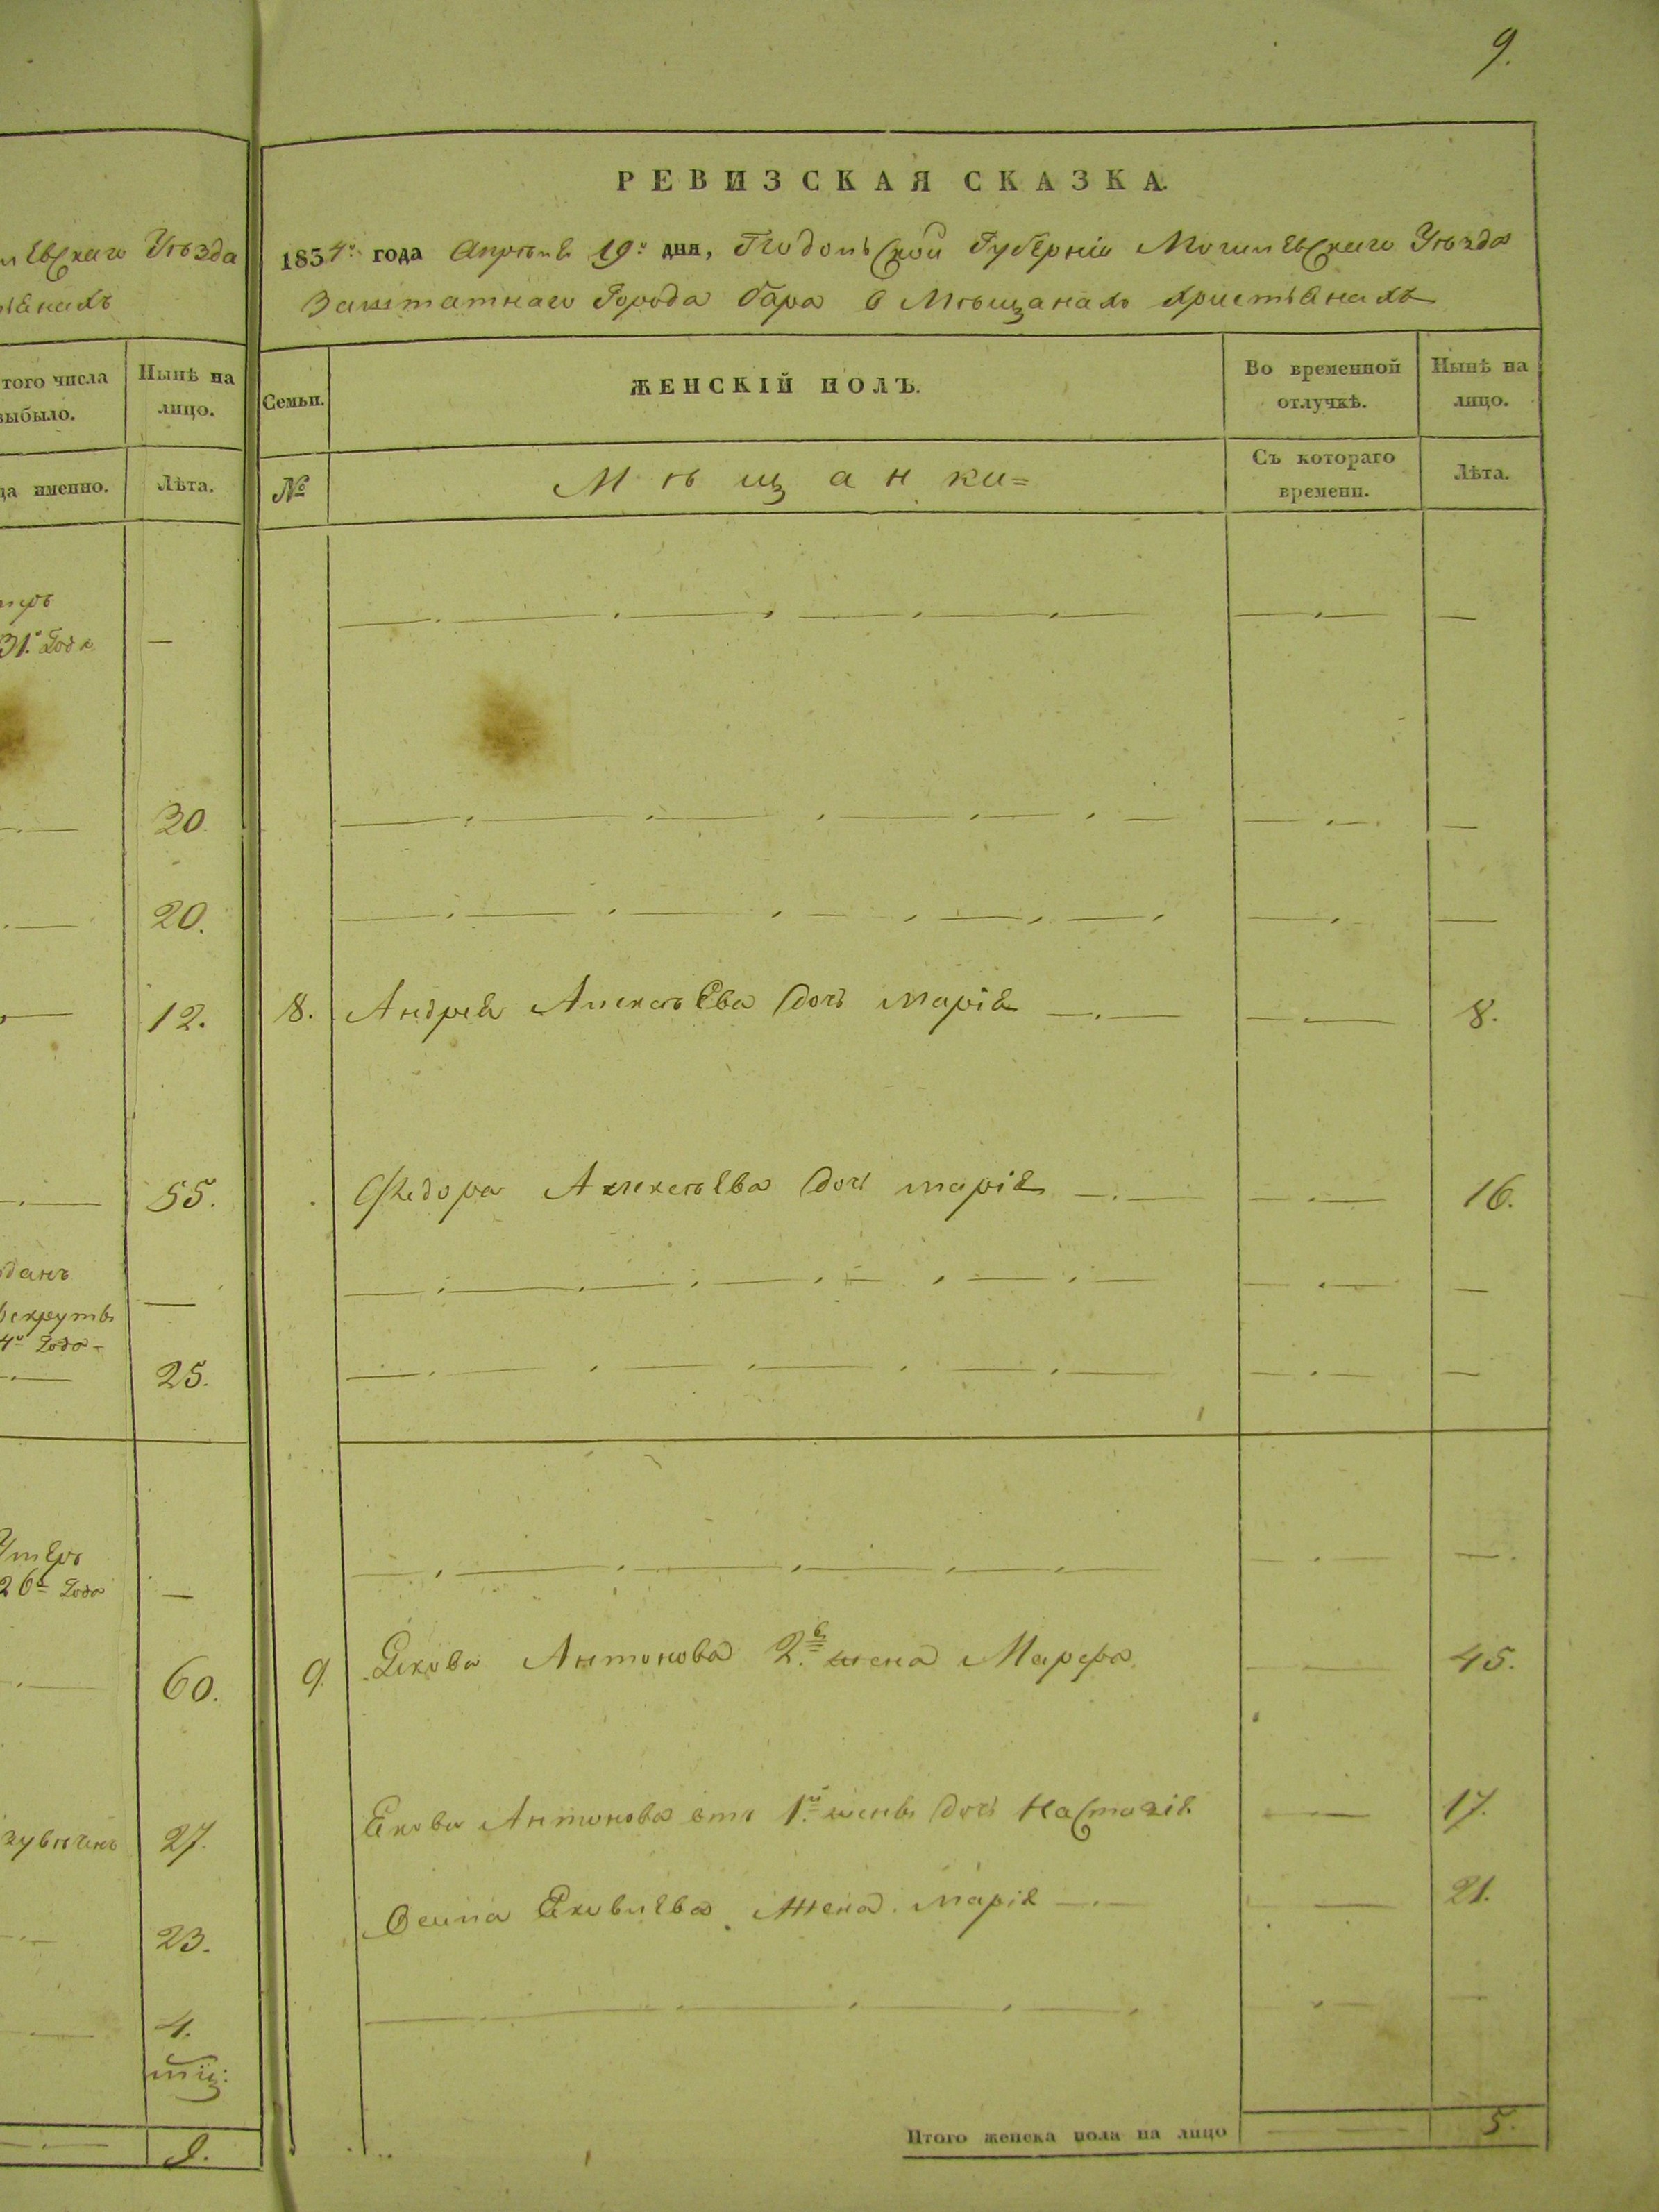 9.
евскаго Уѣзда
того числа
выбыло.
Нынѣ на
лицо.
да именно.
Лѣта.
31го Года
—
30.
20.
12.
55.
данъ
—
рекруты
4го Года
25.
Умеръ
26го Года
—
60.
27.
23.
4.
РЕВИЗСКАЯ СКАЗКА.
1834го года Апрѣля 19го дня, Подольской Губерніи Могилевскаго Уѣзда
Заштатнаго Города Бара О Мѣщанахъ христіанахъ
Семьи.
ЖЕНСКІЙ ПОЛЪ.
Во временной
отлучкѣ.
Нынѣ на
лицо.
№
Мѣщанки
Съ котораго
времени.
Лѣта.
8. Андрея Алексѣева дочь Марія 8.
Федора Алексѣева дочь Марія 16.
9. Якова Антонова 2я жена Марфа 45.
Якова Антонова отъ 1й жены дочь Настазія 17.
Осипа Яковлева Жена Марія 21.
Итого женска пола на лицо 5.